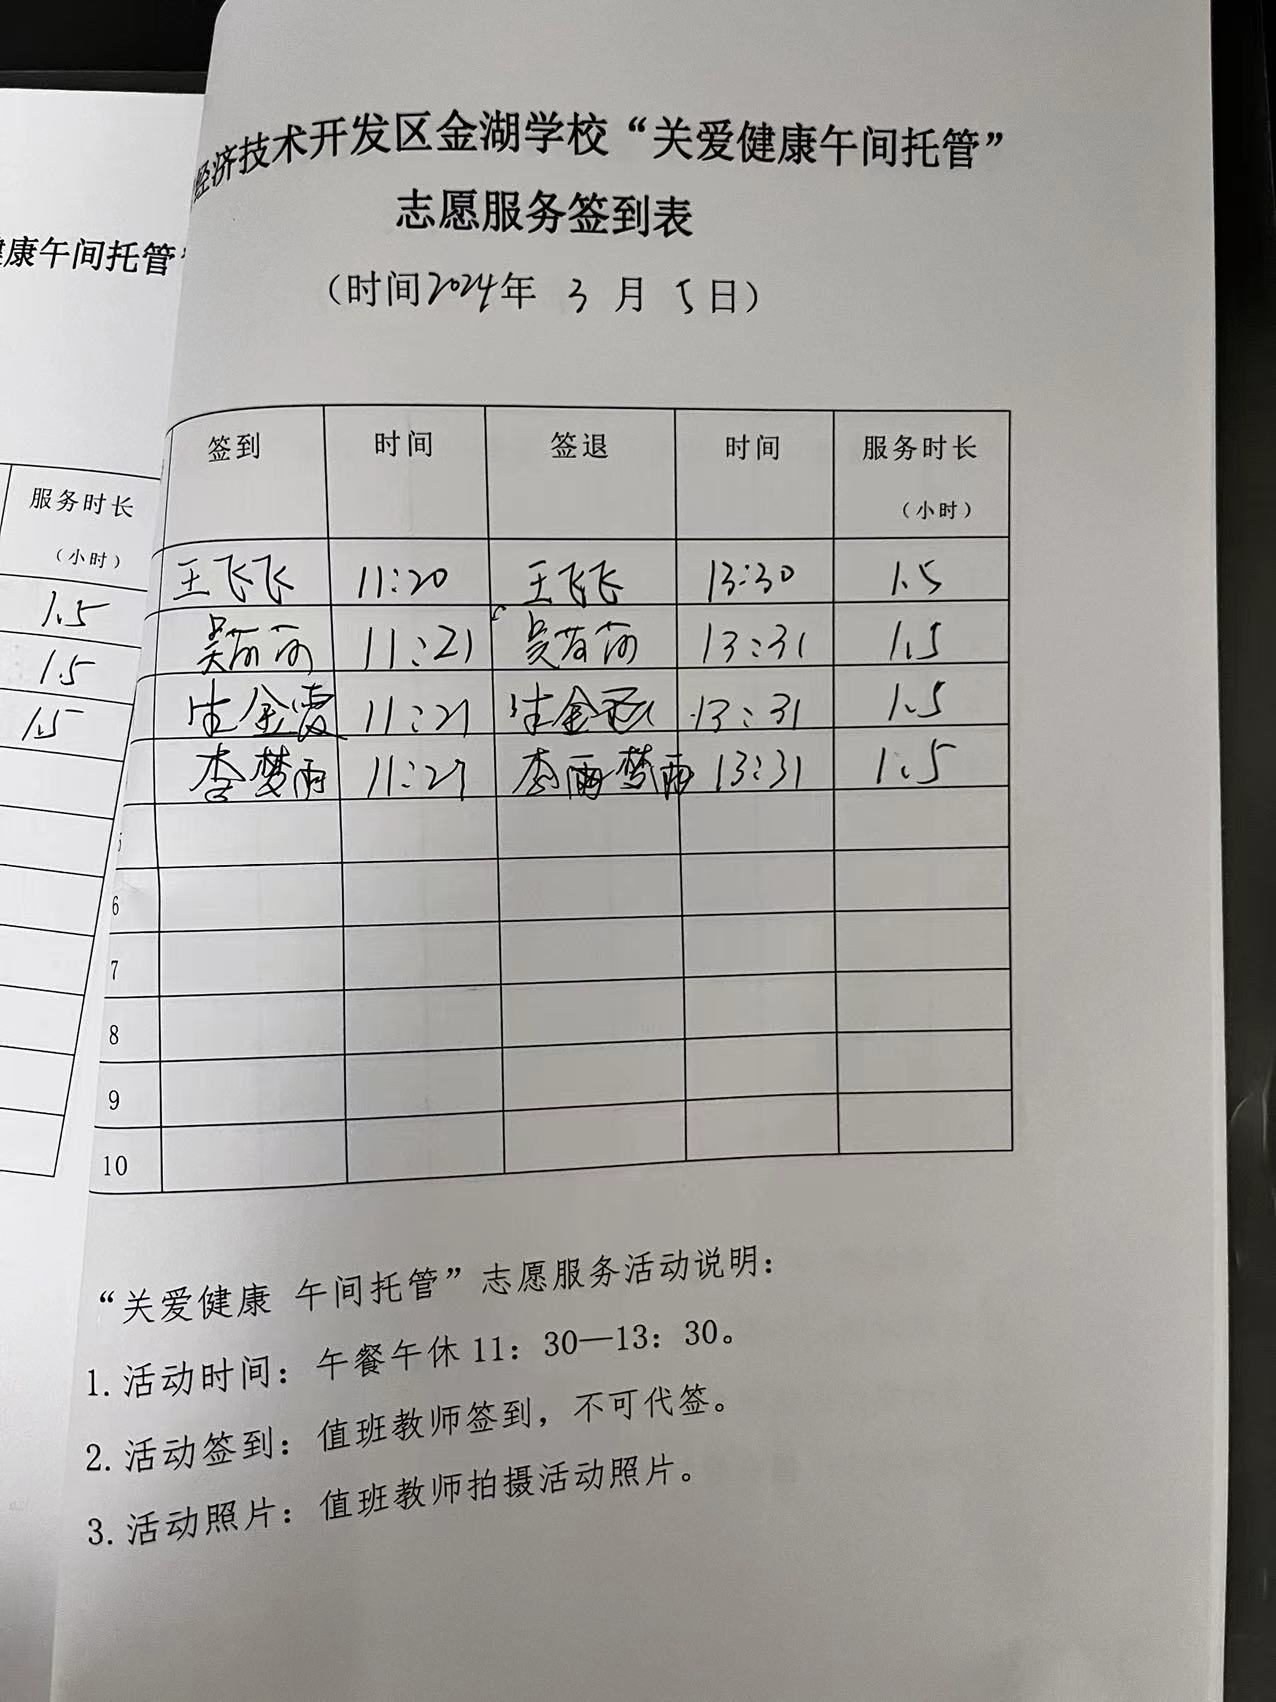 经济技术开发区金湖学校“关爱健康午间托管”
志愿服务签到表
（时间2024年 3 月 5日）
签到 时间 签退 时间 服务时长（小时）
王飞飞 11:20 王飞飞 13:30 1.5
吴苟苟 11:21 吴苟苟 13:31 1.5
生金霞 11:21 生金霞 13:31 1.5
李梦雨 11:21 李雨梦雨 13:31 1.5
6
7
8
9
10
“关爱健康 午间托管”志愿服务活动说明：
1.活动时间：午餐午休11：30—13：30。
2.活动签到：值班教师签到，不可代签。
3.活动照片：值班教师拍摄活动照片。
康午间托管
服务时长
（小时）
1.5
1.5
1.5